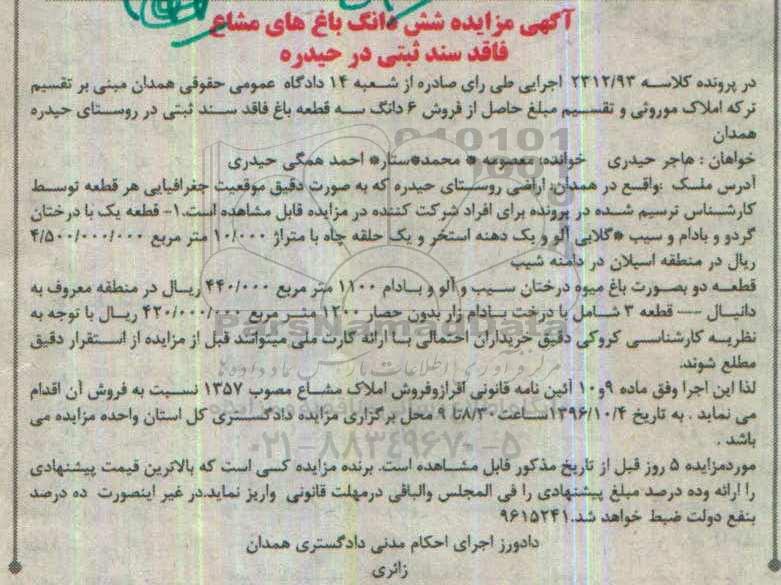 آگهی مزایده شش دانگ باغ های مشاع
فاقد سند ثبتی در حیدره
در پرونده کلاسه ۲۳۱۲/۹۳ اجرایی طی رای صادره از شعبه ۱۴ دادگاه عمومی حقوقی همدان مبنی بر تقسیم
ترکه املاک موروثی و تقسیم مبلغ حاصل از فروش ۶ دانگ سه قطعه باغ فاقد سند ثبتی در روستای حیدره
همدان
خواهان : هاجر حیدری خوانده: معصومه * محمد*ستار* احمد همگی حیدری
آدرس ملک :واقع در همدان: اراضی روستای حیدره که به صورت دقیق موقعیت جغرافیایی هر قطعه توسط
کارشناس ترسیم شده در پرونده برای افراد شرکت کننده در مزایده قابل مشاهده است.۱- قطعه یک با درختان
گردو و بادام و سیب *گلابی آلو و یک دهنه استخر و یک حلقه چاه با متراژ ۱۰/۰۰۰ متر مربع ۴/۵۰۰/۰۰۰/۰۰۰
ریال در منطقه اسیلان در دامنه شیب
قطعه دو بصورت باغ میوه درختان سیب و آلو و بادام ۱۱۰۰ متر مربع ۴۴۰/۰۰۰ ریال در منطقه معروف به
دانیال ---- قطعه ۳ شامل با درخت بادام زار بدون حصار ۱۲۰۰ متر مربع ۴۲۰/۰۰۰/۰۰۰ ریال با توجه به
نظریه کارشناسی کروکی دقیق خریداران احتمالی با ارائه کارت ملی میتوانند قبل از مزایده از استقرار دقیق
مطلع شوند.
لذا این اجرا وفق ماده ۹و۱۰ آئین نامه قانونی افرازوفروش املاک مشاع مصوب ۱۳۵۷ نسبت به فروش آن اقدام
می نماید . به تاریخ ۱۳۹۶/۱۰/۴ساعت۸/۳۰تا ۹ محل برگزاری مزایده دادگستری کل استان واحده مزایده می
باشد .
موردمزایده ۵ روز قبل از تاریخ مذکور قابل مشاهده است. برنده مزایده کسی است که بالاترین قیمت پیشنهادی
را ارائه وده درصد مبلغ پیشنهادی را فی المجلس والباقی درمهلت قانونی واریز نماید.در غیر اینصورت ده درصد
بنفع دولت ضبط خواهد شد.۹۶۱۵۲۴۱
دادورز اجرای احکام مدنی دادگستری همدان
زائری
ParsNamadData
مرکز فرآوری اطلاعات پارس نماد داده ها
۰۲۱-۸۸۳۴۹۶۷۰-۵